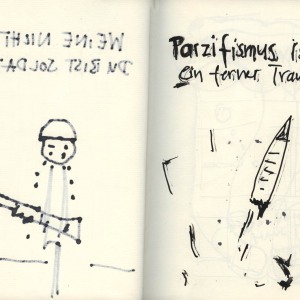 WEINE NICHT
DU BIST SOLDA
Parzifismus is
ein ferner Trau